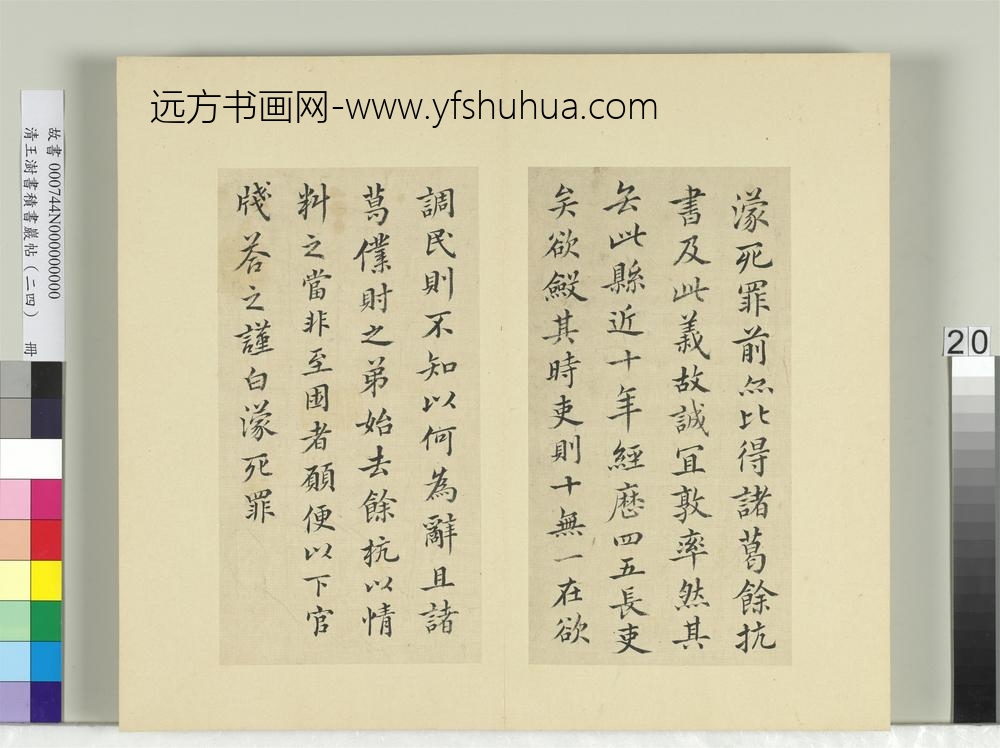 远方书画网-www.yfshuhua.com
濛死罪前亦比得諸葛餘杭
書及此義故誠宜敦率然其
去此縣近十年經歷四五長吏
矣欲毆其時吏則十無一在欲
調民則不知以何為辭且諸
葛僕射之弟始去餘杭以情
料之當非至困者願便以下官
牋答之謹白濛死罪
故書 000744N000000000
清王澍書積書巖帖(二四) 冊
20